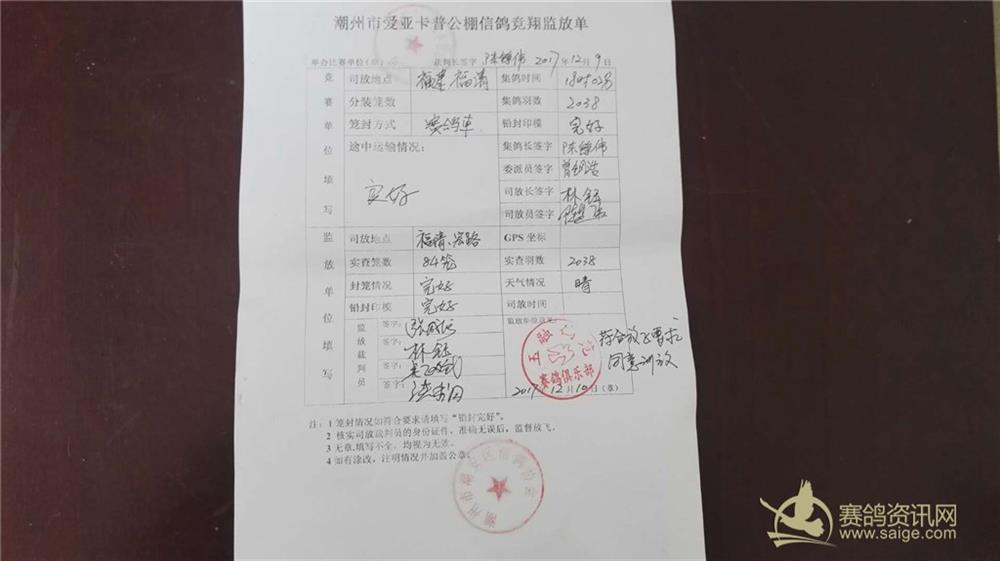 潮州市爱亚卡普公棚信鸽竞翔监放单
举办比赛单位(章) 裁判长签字 陈锦伟 2017年12月9日
竞赛单位填写
司放地点 福建福清 集鸽时间 18时02分
分装笼数 集鸽羽数 2038
笼封方式 赛鸽车 铅封印模 完好
途中运输情况: 集鸽长签字 陈锦伟
完好 委派员签字
司放长签字 林钰
司放员签字
监放单位填写
司放地点 福清、宏路 GPS 坐标
实查笼数 84笼 实查羽数 2038
封笼情况 完好 天气情况 晴
铅封印模 完好 司放时间
监放裁判员 签字: 监放单位意见:
签字: 林钰 符合放飞要求
签字: 同意训放
签字:
赛鸽俱乐部
2017年12月10日(章)
注: 1 笼封情况如符合要求请填写“铅封完好”。
2 核实司放裁判员的身份证件,准确无误后,监督放飞。
3 无章.填写不全、均视为无效。
4 如有涂改,注明情况并加盖公章。
潮州市潮安区信鸽协会
赛鸽资讯网
www.saige.com